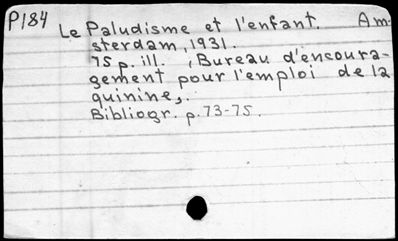 P184 Le Paludisme et l'enfant. Am-
sterdam, 1931.
75 p. ill. (Bureau d'encoura-
gement pour l'emploi de la
quinine).
Bibliogr. p. 73-75.